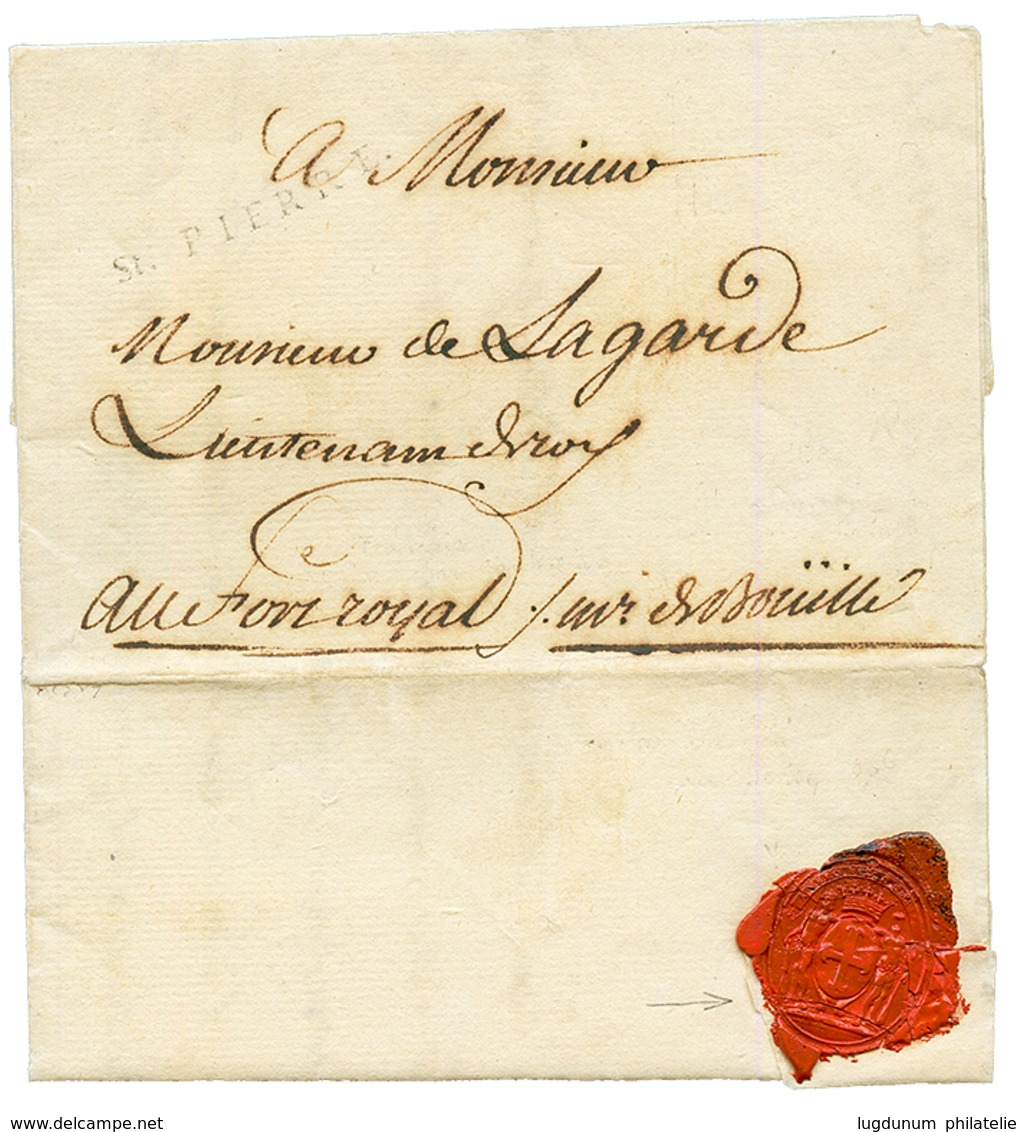 A Monsieur
St. PIERRE.
Monsieur de Lagarde
Lieutenant de roy
Au Fort royal /. mr. de Boüille
www.delcampe.net
lugdunum philatelie